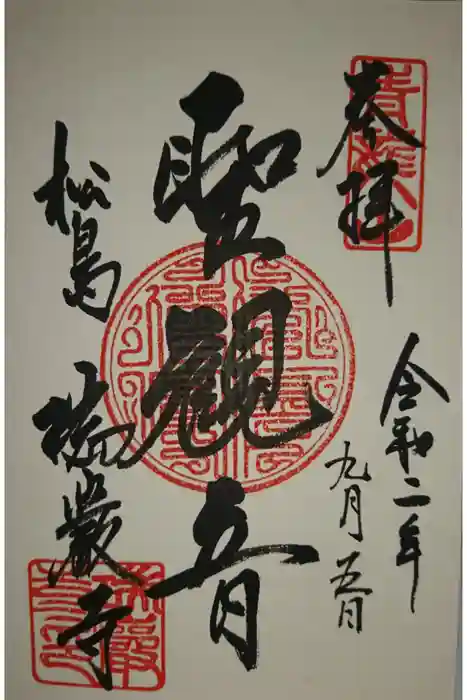 奉拝
令和二年
九月五日
聖観音
松島
瑞巌寺